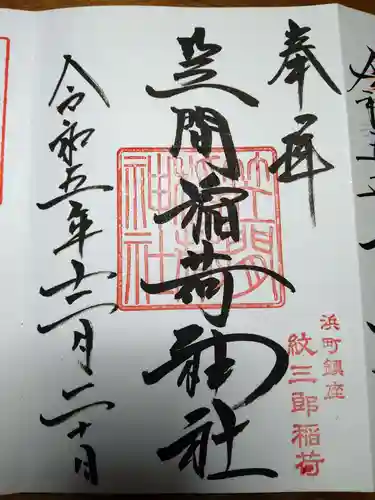 奉拝
浜町鎮座
紋三郎稲荷
笠間稲荷神社
笠間稲荷神社
令和五年十二月二十日